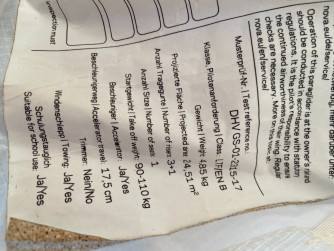 nova.eu/de/service/
Operation of this paraglider is at the owner's risk
should be conducted in accordance with
regulations. It is the pilot's responsibility to ensure
the continued airworthiness of the wing. Regular
checks are necessary. More
nova.eu/en/service/
Musterprüf-Nr. | Test reference no.
DHV GS-01-2315-17
Klasse, Pilotenanforderung | Class: LTF/EN B
Gewicht | Weight: 4,95 kg
Projizierte Fläche | Projected area: 24,51 m²
Anzahl Tragegurte | Number of riser: 3+1
Anzahl Sitze | Number of seats: 1
Startgewicht | Take off weight: 90-110 kg
Beschleuniger | Accelerator: Ja/Yes
Beschleunigerweg | Accelerator travel: 17,5 cm
Trimmer: Nein/No
Windenschlepp | Towing: Ja/Yes
Schulungstauglich
Suitable for school use: Ja/Yes